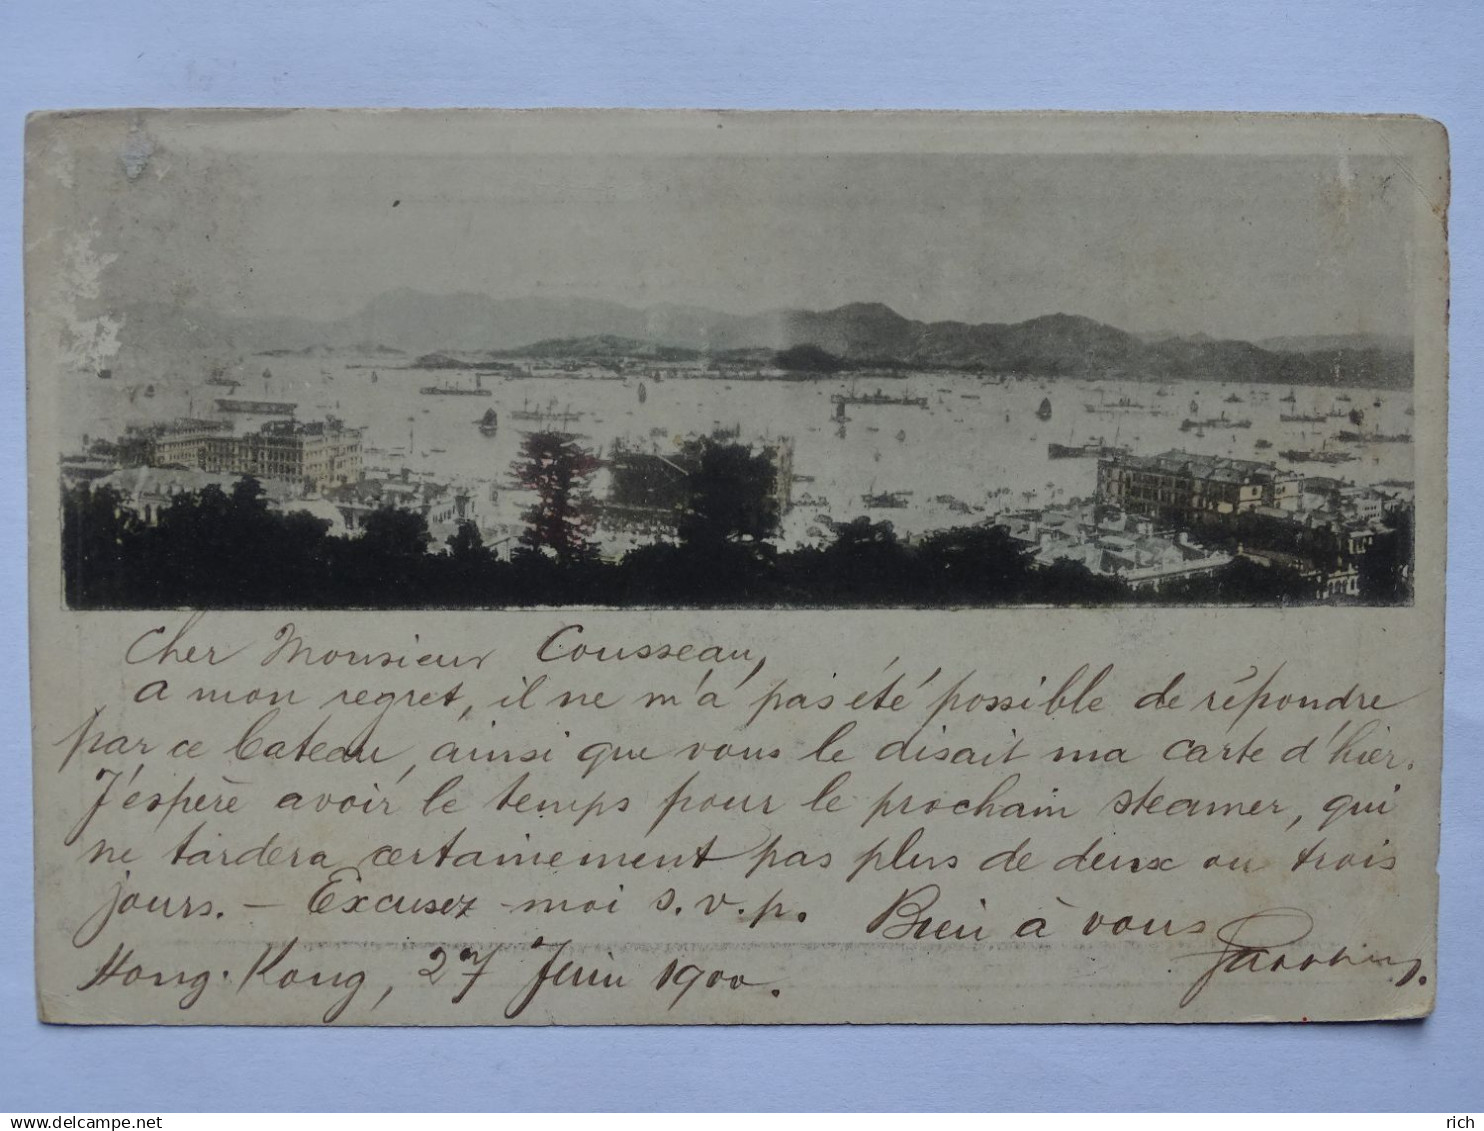 Cher Monsieur Cousseau,
a mon regret, il ne m'a pas été possible de répondre
par ce bateau, ainsi que vous le disait ma carte d'hier.
J'espère avoir le temps pour le prochain steamer, qui
ne tardera certainement pas plus de deux ou trois
jours. — Excusez-moi s.v.p. Bien à vous
Hong-Kong, 27 Juin 1900.
rich
www.delcampe.net